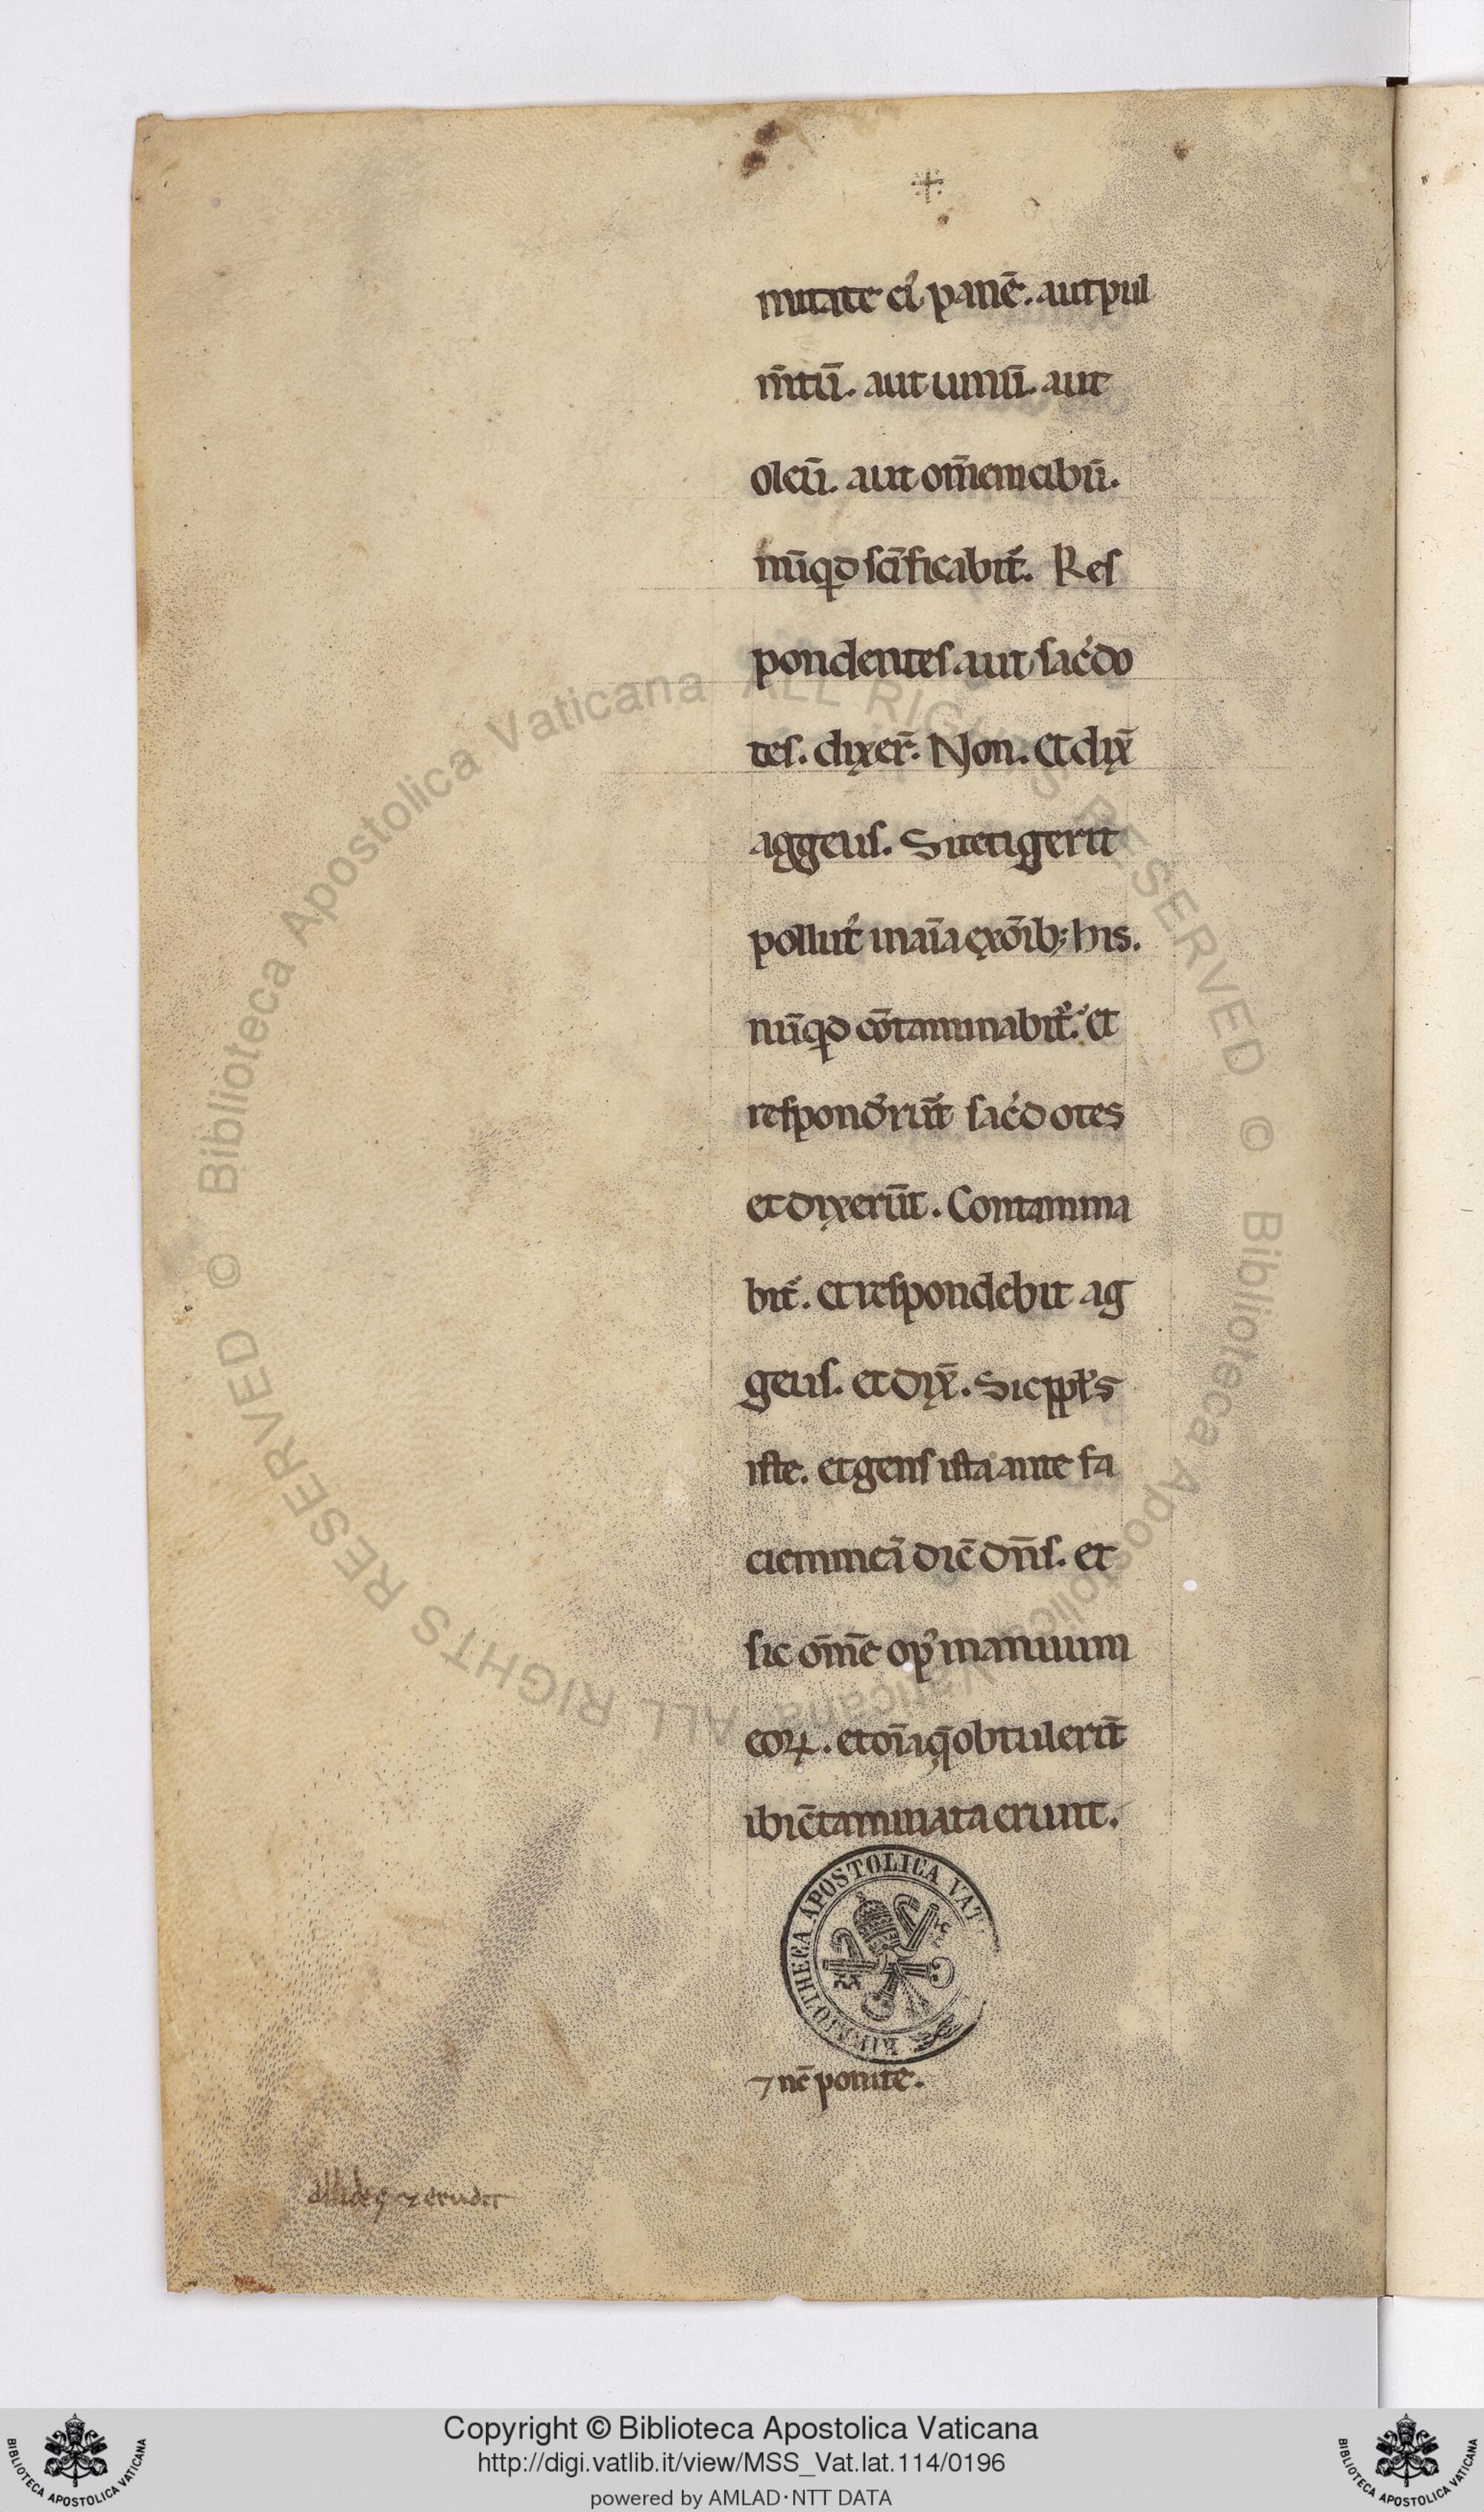 mitate ei᾽ panē. aut pul
m̄tū. aut uinū. aut
oleū. aut om̄em cibū.
nūqd sc̄ificabit᷑. Res
pondentes aut᷑ sac᷑do
tes. dixer̄. Non. Et dix̄
aggeus. Si tetigerit
pollut᷑ in aīa ex oīb; his.
nūqd cōtaminabit᷑. Et
respond᷑rūt sac᷑dotes
et dixerūt. Contamina
bit᷑. et respondebit ag
geus. et dix̄. Sic ppl̄s
iste. et gens ista ante fa
ciem meā dic̄ dn̄s. et
sic om̄e op᷒ manuum
eoꝝ. et oīa q̄ obtulerīt
ibi c̄taminata erunt.
BIBLIOTHECA APOSTOLICA VAT
⁊ nc̄ ponite.
© Biblioteca Apostolica Vaticana ALL RIGHTS RESERVED
© Biblioteca Apostolica Vaticana ALL RIGHTS RESERVED
Copyright © Biblioteca Apostolica Vaticana
http://digi.vatlib.it/view/MSS_Vat.lat.114/0196
powered by AMLAD·NTT DATA
BIBLIOTECA APOSTOLICA VATICANA
BIBLIOTECA APOSTOLICA VATICANA